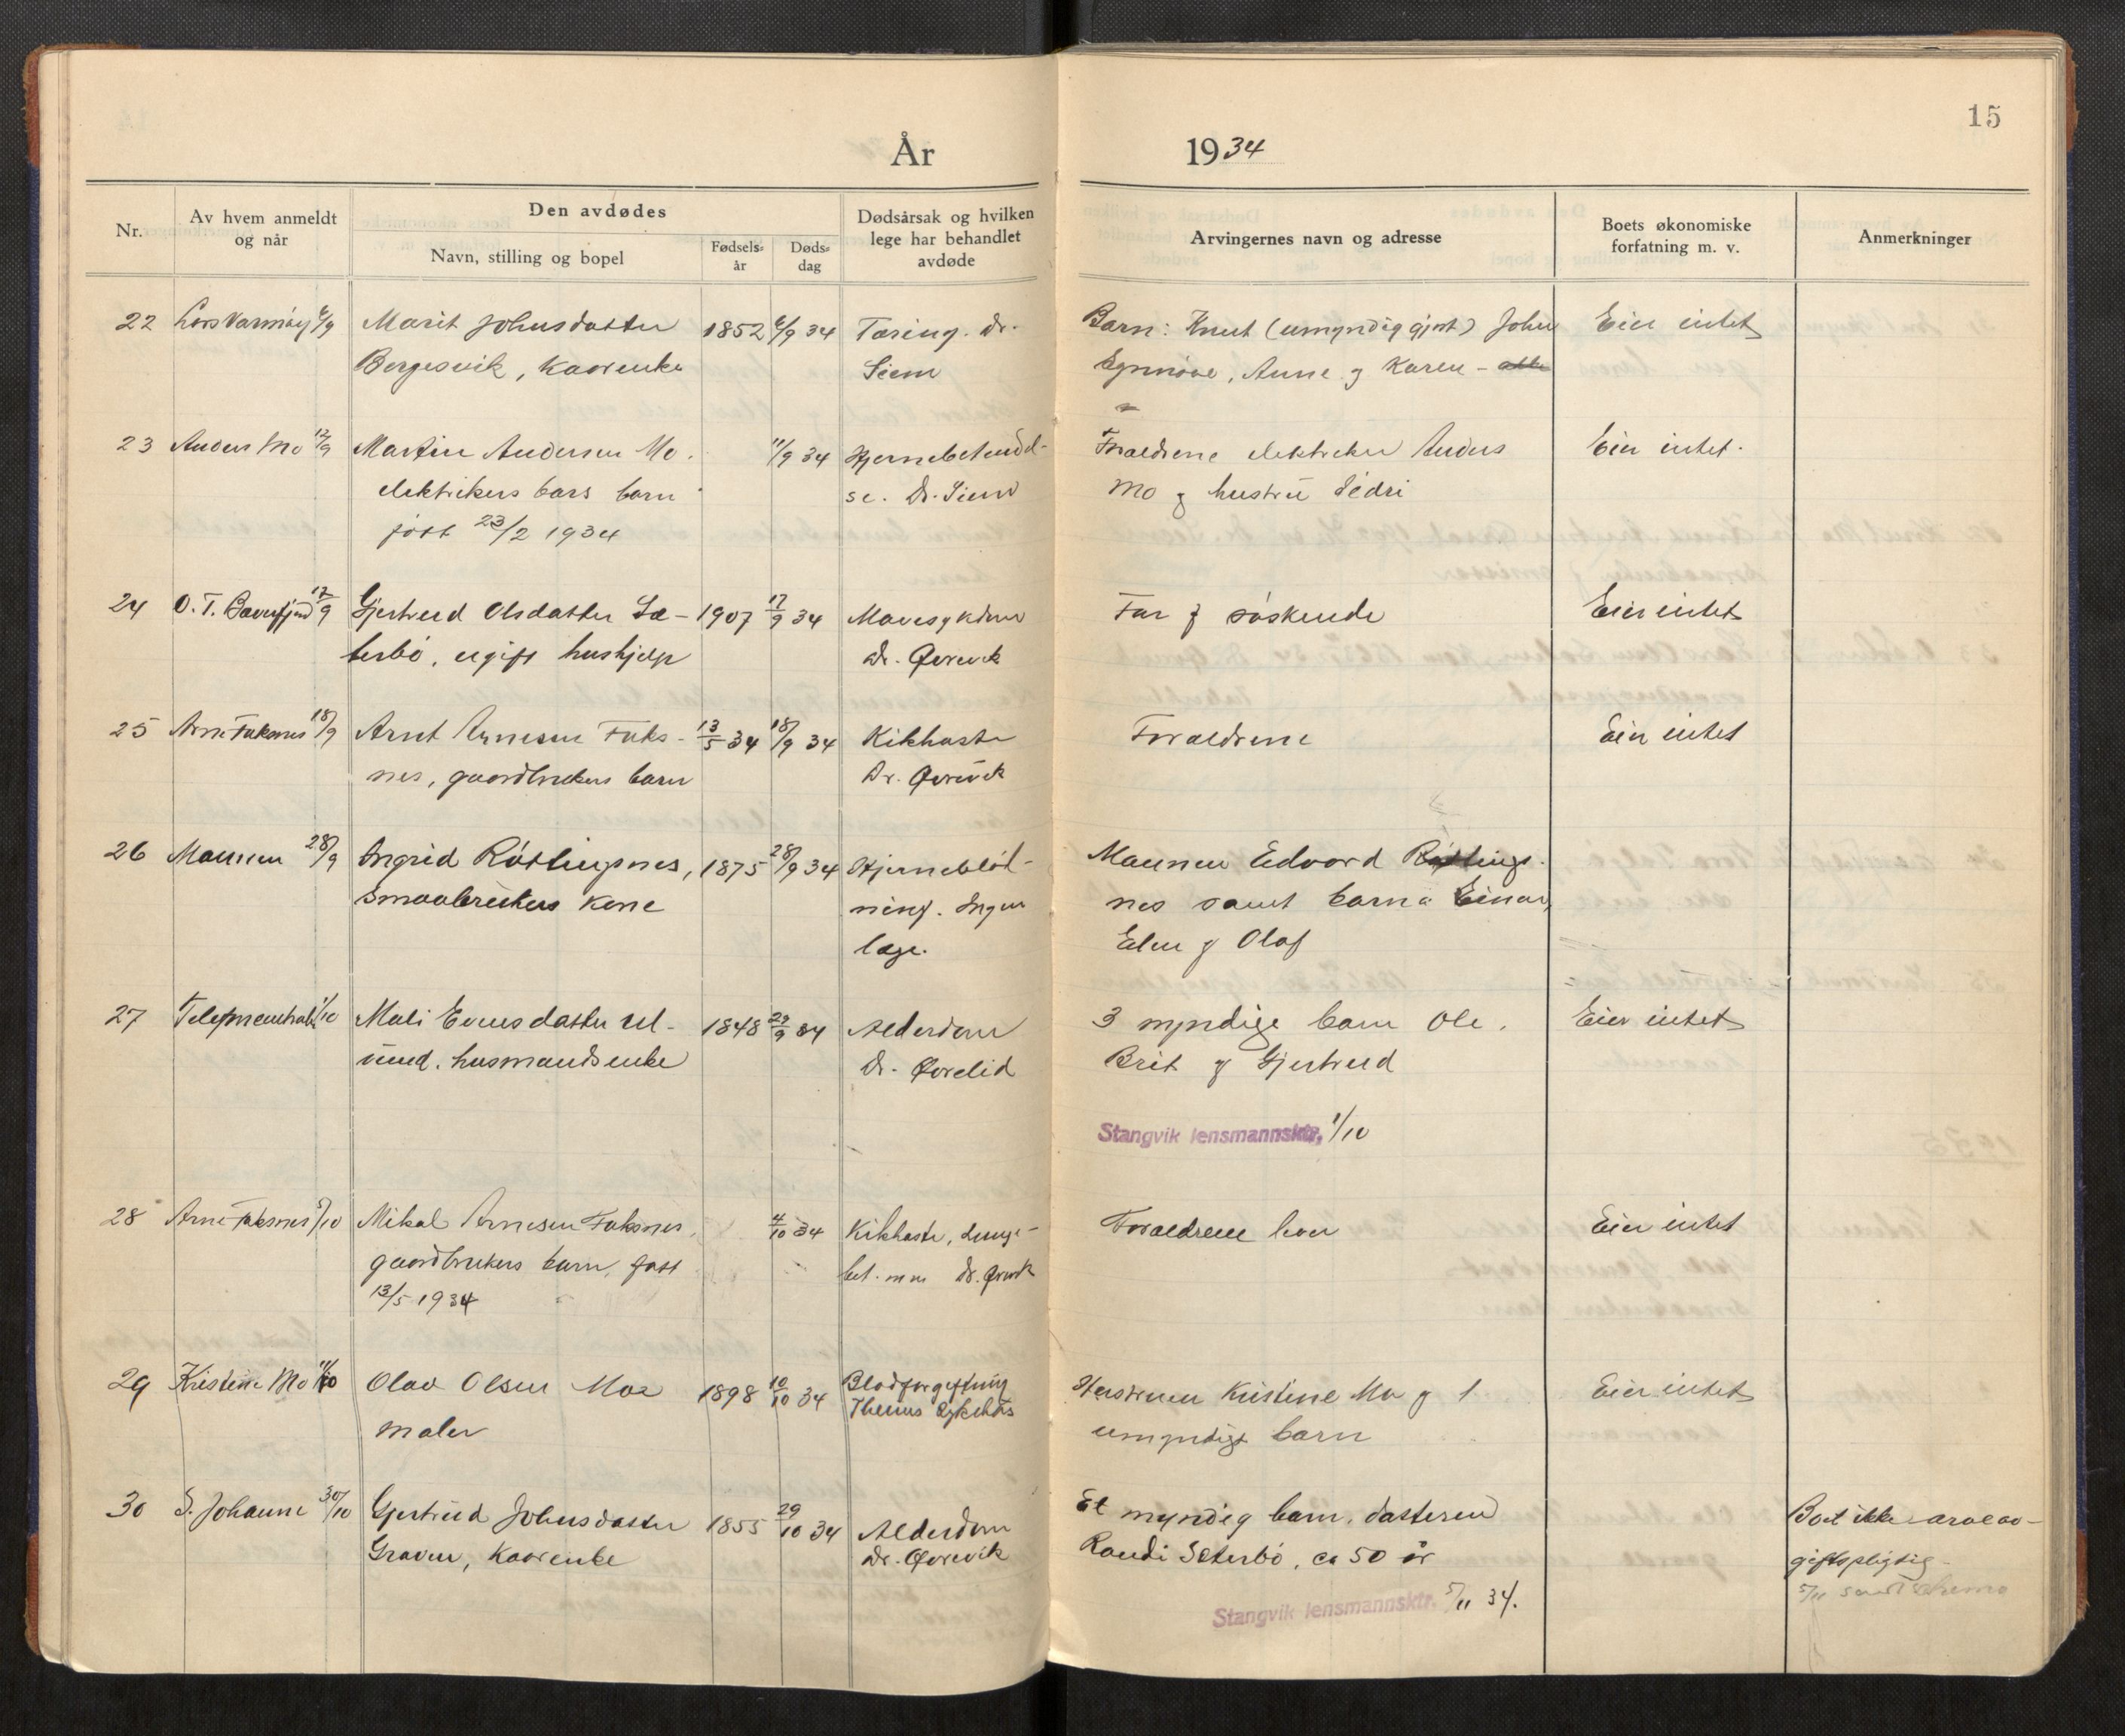 15
År 1934
Nr.
Av hvem anmeldt
og når
Den avdødes
Navn, stilling og bopel
Fødsels-
år
Døds-
dag
Dødsårsak og hvilken
lege har behandlet
avdøde
Arvingernes navn og adresse
Boets økonomiske
forfatning m. v.
Anmerkninger
22 Lars Varmøy 6/9 Marit Johnsdatter 1852 6/9 34 Tæring. Dr. Barn: Knut (umyndiggjort) John Eier intet
Bergesvik, Kaarenke Siem Synnøve, Anne g Karen - alle
23 Anders Mo 12/9 Martin Andersen Mo. 11/9 34 Hjernebetendel- Foraeldrene elektriker Anders Eier intet.
elektrikers bars barn se. Dr. Siem Mo g hustru Sidri
født 23/2 1934
24 O. T. Bæverfjord 17/9 Gjertrud Olsdatter Sæ- 1907 17/9 34 Mavesykdom Far g søskende Eier intet
terbø, ugift hushjelp Dr. Qvrevik
25 Arne Faksnes 18/9 Arnt Arnesen Faks- 13/5 34 18/9 34 Kikhoste Foraeldrene Eier intet
nes, gaardbrukers barn Dr. Qvrevik
26 Mannen 28/9 Ingrid Røtlingsnes, 1875 28/9 34 Hjerneblød- Mannen Edvard Røtlings-
smaabrukers kone ning. Ingen nes samt barna Einar,
læge. Elen g Olaf
27 Telefoncentralen 1/10 Mali Evensdatter Ul- 1848 29/9 34 Alderdom 3 myndige barn Ole, Eier intet
vund. husmandsenke Dr. Qvrelid Brit g Gjertrud
Stangvik lensmannsktr. 1/10
28 Arne Faksnes 5/10 Mikal Arnesen Faksnes, 4/10 34 Kikhoste, Lunge- Foraeldrene lever Eier intet
gaardbrukers barn, født bet. m m Dr. Qvrevik
13/5 1934
29 Kristine Mo 11/10 Olav Olsen Moe 1898 10/10 34 Blodforgiftning Hustruen Kristine Mo g 1 Eier intet
maler Sykehus umyndigt barn
30 S. Johanne 30/10 Gjertrud Johnsdatter 1855 29/10 34 Alderdom Et myndig barn, datteren Boet ikke arveav-
Graven, Kaarenke Dr. Qvrevik Randi Seterbø, ca 50 år giftspligtig
Stangvik lensmannsktr. 5/11 34. 5/11 sendt skema